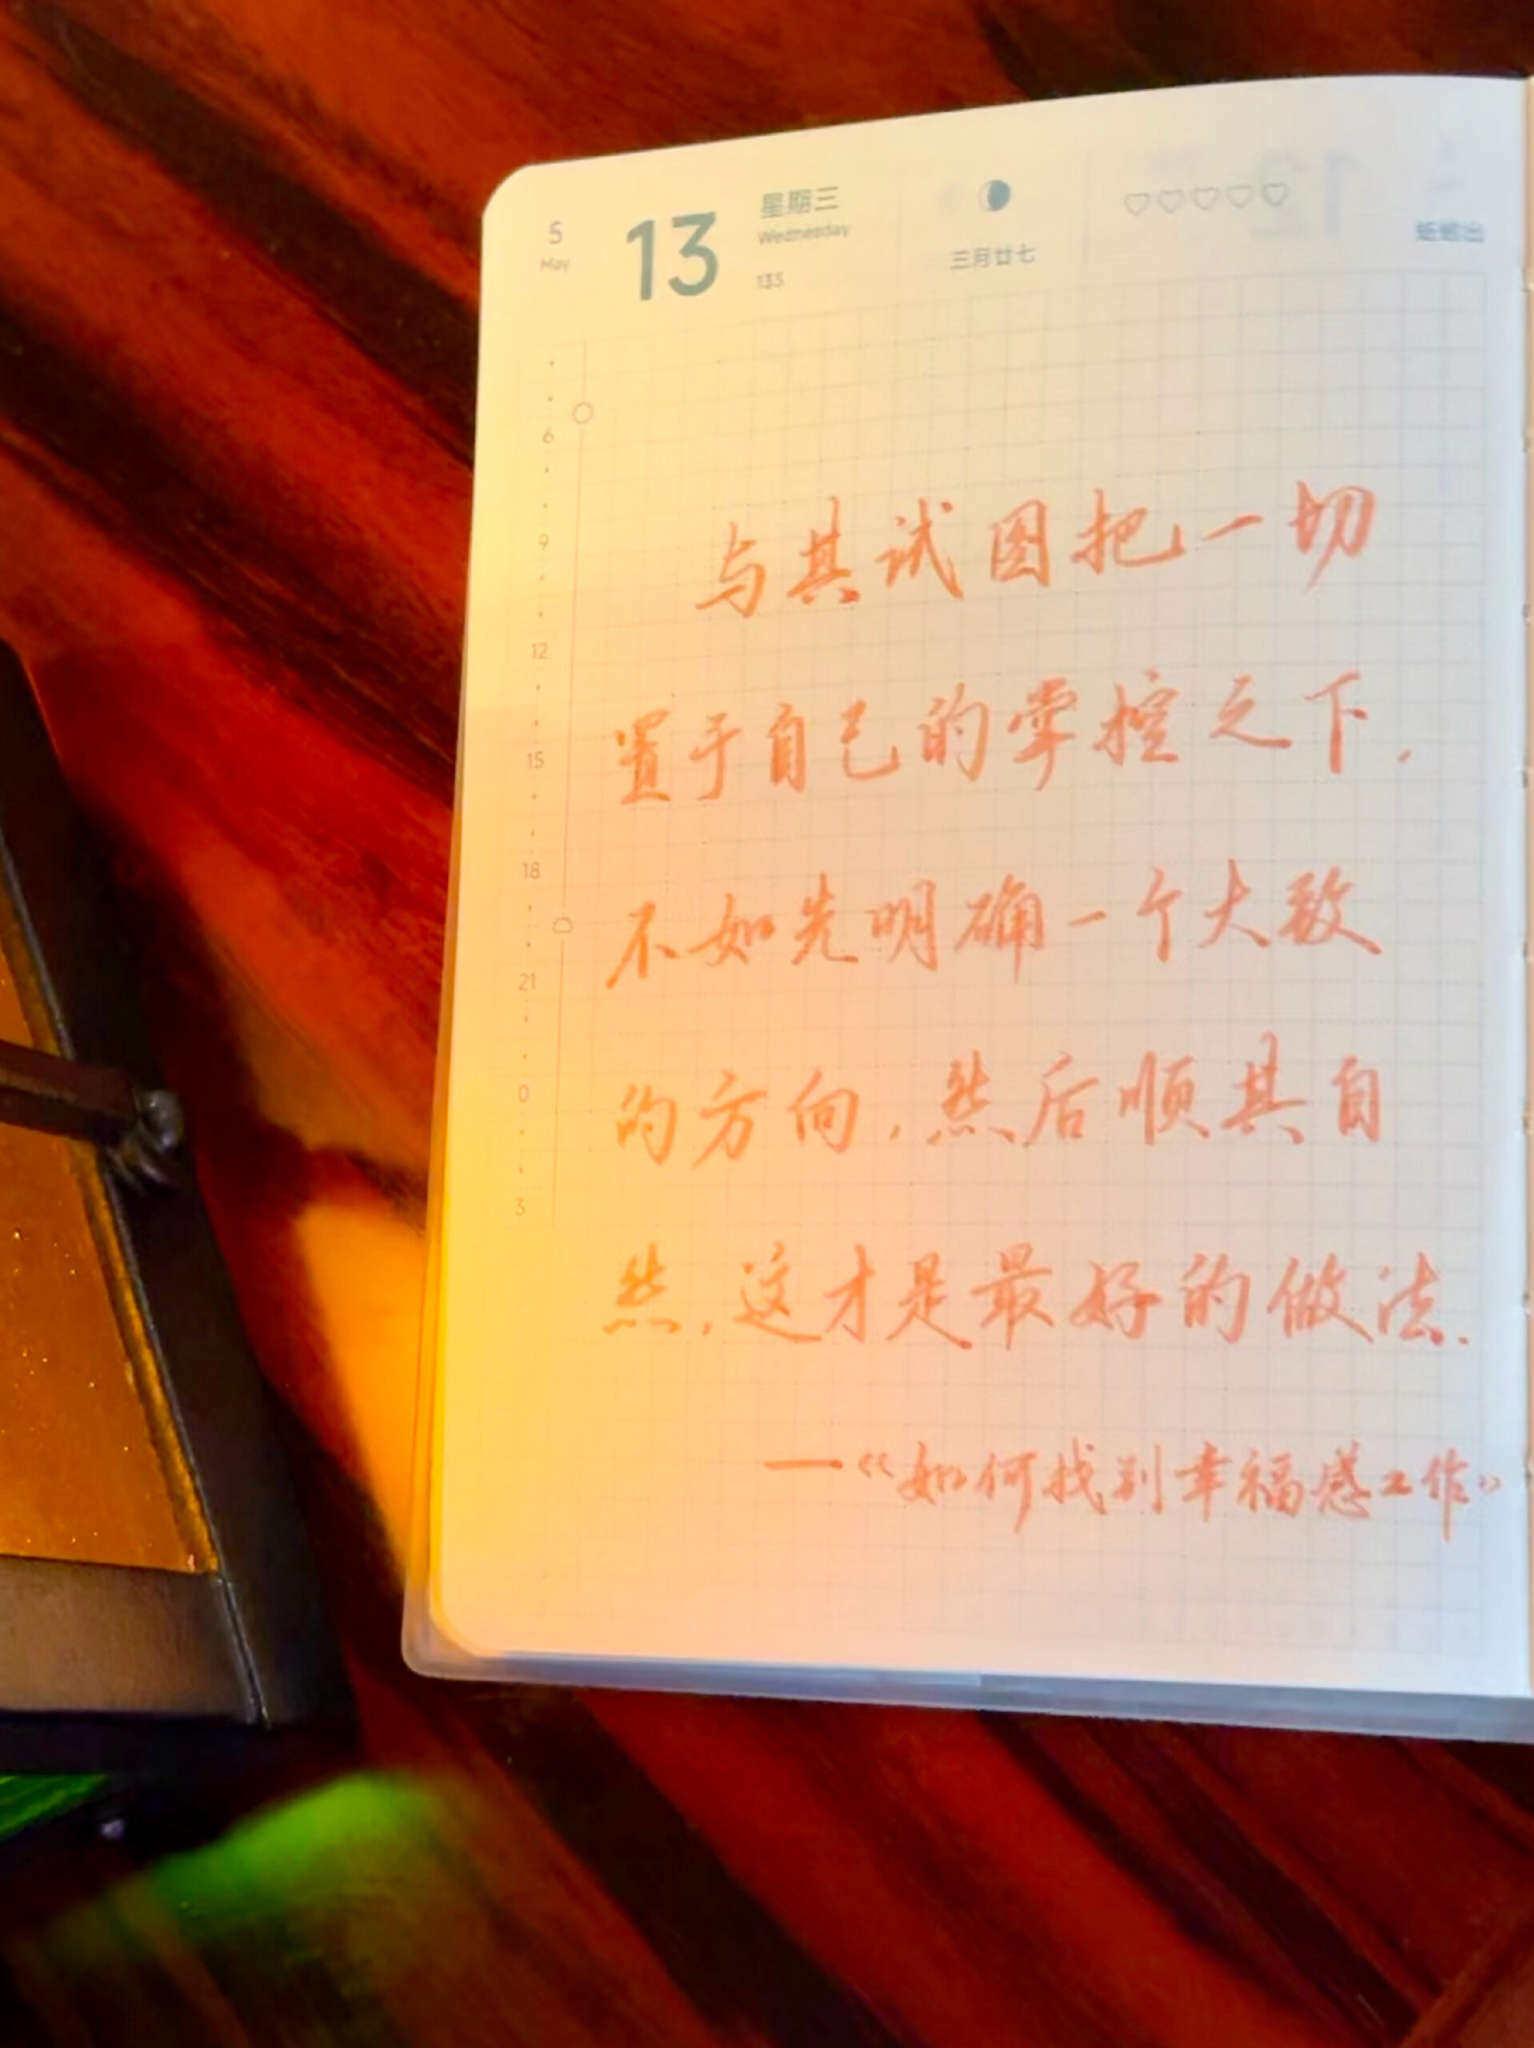 5
May
13
星期三
Wednesday
133
三月廿七
6
9
12
15
18
21
0
3
与其试图把一切
置于自己的掌控之下,
不如先明确一个大致
的方向,然后顺其自
然,这才是最好的做法.
—《如何找到幸福感工作》